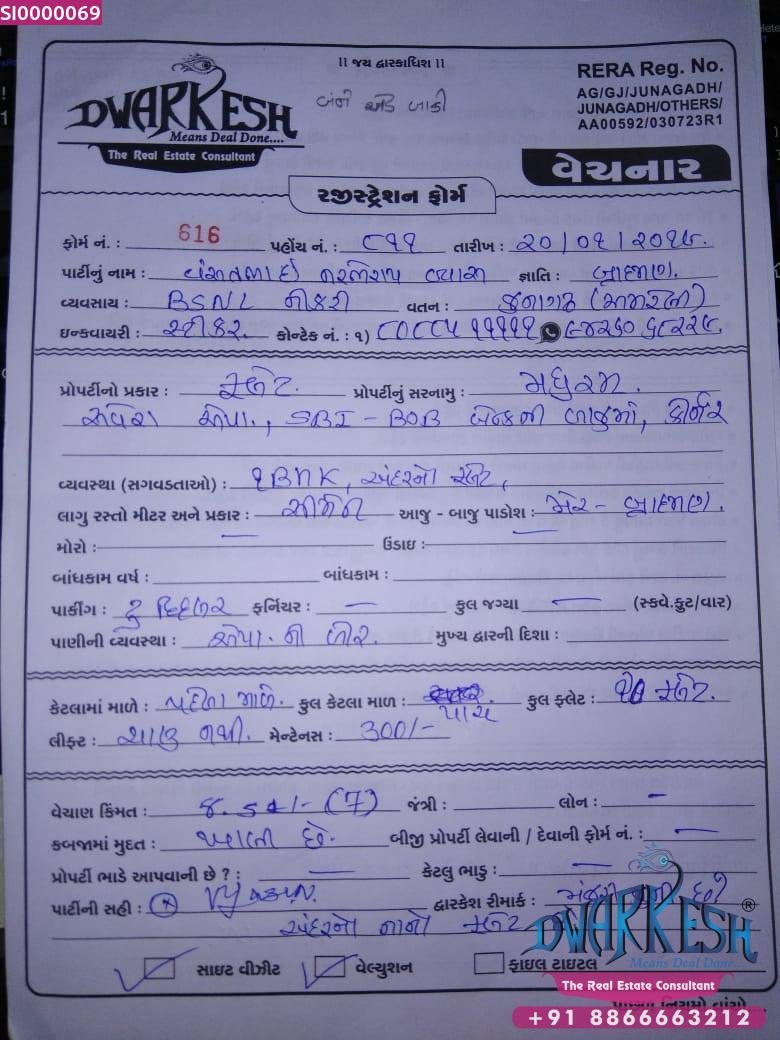 SI0000069
॥ જય દ્વારકાધિશ ॥
DWARKESH
Means Deal Done....
The Real Estate Consultant
બંને બાકી
RERA Reg. No.
AG/GJ/JUNAGADH/
JUNAGADH/OTHERS/
AA00592/030723R1
વેચનાર
રજીસ્ટ્રેશન ફોર્મ
ફોર્મ નં. : 616 પહોંચ નં. : ૮૧૧ તારીખ :
પાર્ટીનું નામ : વ્યાસ જ્ઞાતિ : બ્રાહ્મણ.
વ્યવસાય : BSNL નોકરી વતન : જુનાગઢ
ઇન્કવાયરી : સ્ટીકર. કોન્ટેક નં. : ૧)
પ્રોપર્ટીનો પ્રકાર : ફ્લેટ. પ્રોપર્ટીનું સરનામુ : મધુરમ.
એપા., SBI - BOB બેન્કની બાજુમાં, કોર્નર
વ્યવસ્થા (સગવડતાઓ) : ૧BHK, અંદરનો ફ્લેટ,
લાગુ રસ્તો મીટર અને પ્રકાર : આજુ - બાજુ પાડોશ : મેર - બ્રાહ્મણ.
મોરો : — ઉંડાઇ : —
બાંધકામ વર્ષ : બાંધકામ :
પાર્કીંગ : ટુ વ્હિલર ફર્નિચર : — કુલ જગ્યા — (સ્કવે.ફુટ/વાર)
પાણીની વ્યવસ્થા : એપા. નો બોર. મુખ્ય દ્વારની દિશા :
કેટલામાં માળે : પહેલા માળે. કુલ કેટલા માળ : પાંચ કુલ ફ્લેટ : ૧૦ ફ્લેટ.
લીફ્ટ : ચાલુ નથી. મેન્ટેનસ : 300/-
વેચાણ કિંમત : (7) જંત્રી : લોન : —
કબજામાં મુદત : ખાલી છે. બીજી પ્રોપર્ટી લેવાની / દેવાની ફોર્મ નં. : —
પ્રોપર્ટી ભાડે આપવાની છે ? : — કેટલુ ભાડુ : —
પાર્ટીની સહી : દ્વારકેશ રીમાર્ક :
અંદરનો નાનો ફ્લેટ
સાઇટ વીઝીટ વેલ્યુશન ફાઇલ ટાઇટલ
DWARKESH®
Means Deal Done....
The Real Estate Consultant
+91 8866663212